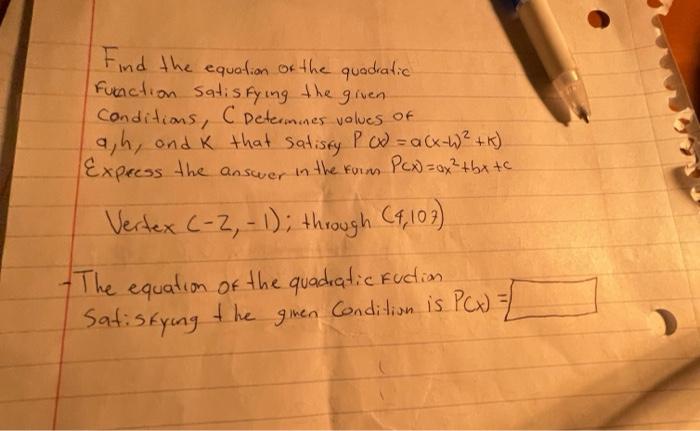 Find the equation of the quadratic
Function satisfying the given
Conditions, C Determines values of
a,h, and K that satisfy P(x)=a(x-h)²+K)
Express the answer in the Form P(x)=ax²+bx+c
Vertex (-2,-1); through (4,107)
-The equation of the quadratic Fuction
Satisfying the given Condition is P(x)=